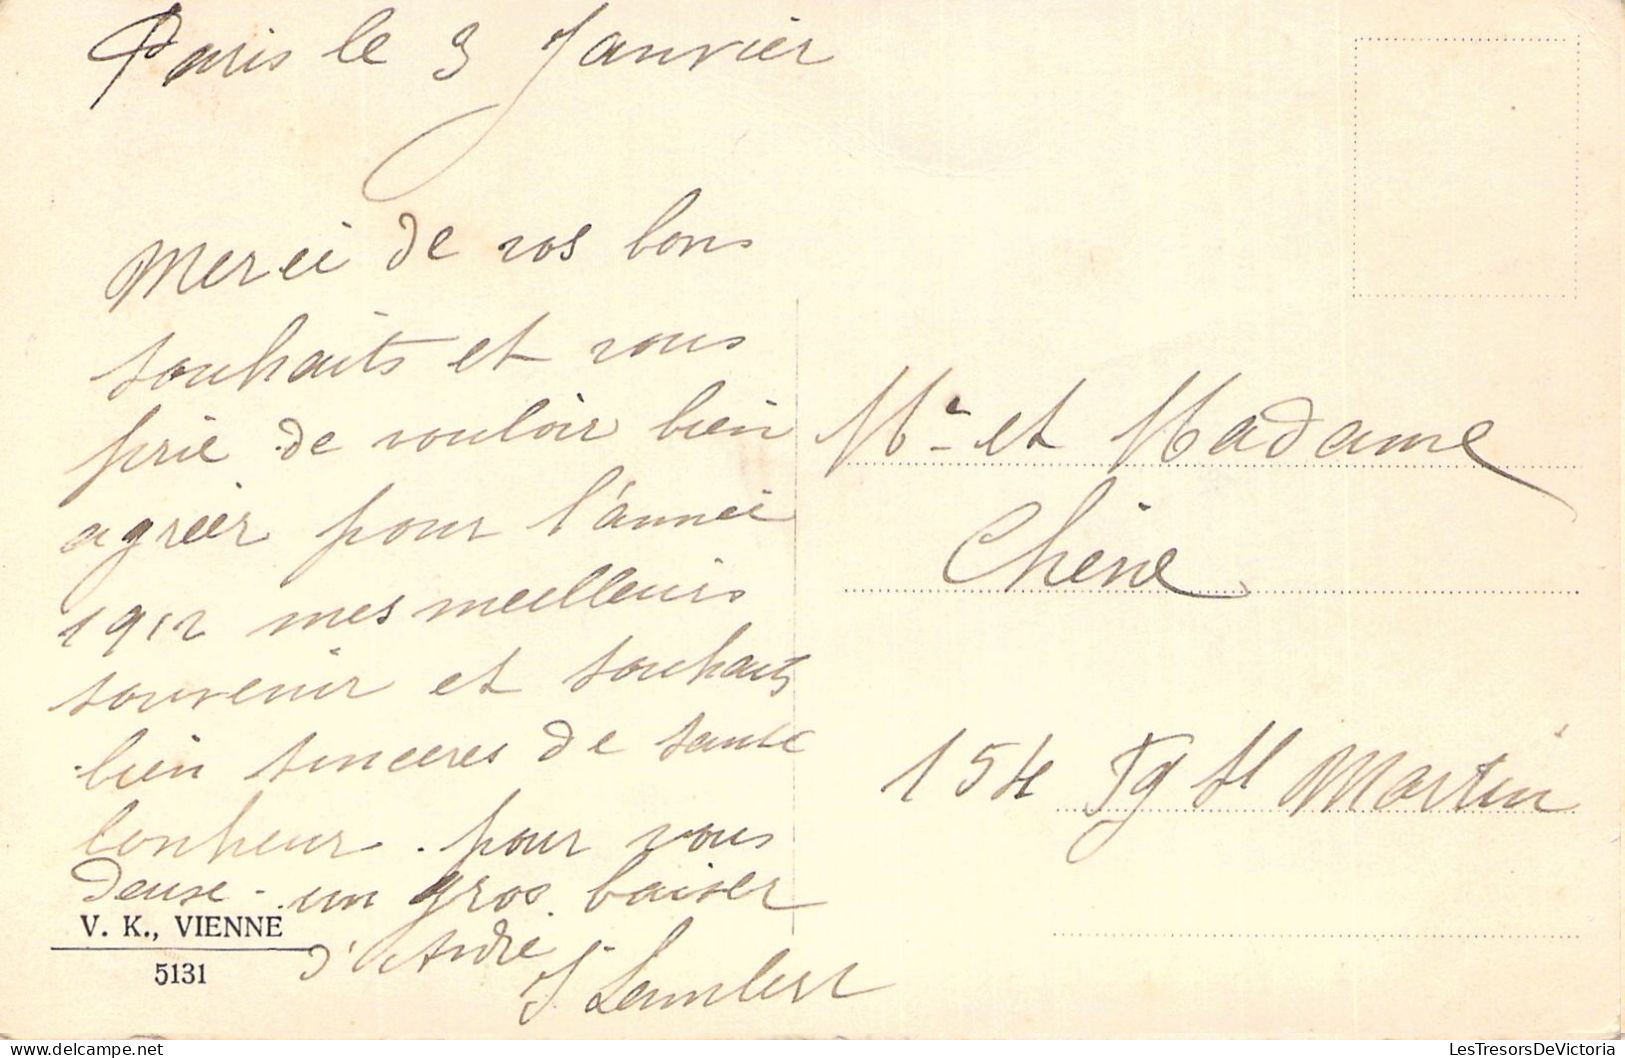 Paris le 3 Janvier
Merci de vos bons
souhaits et vous
prie de vouloir bien
agréer pour l'année
1912 mes meilleurs
souvenir et souhaits
bien sinceres de santé
bonheur. pour vous
deux. un gros baiser
d'André
J. Lambert
V. K., VIENNE
5131
Mr et Madame
Chêne
154 Fg St Martin
LesTresorsDeVictoria